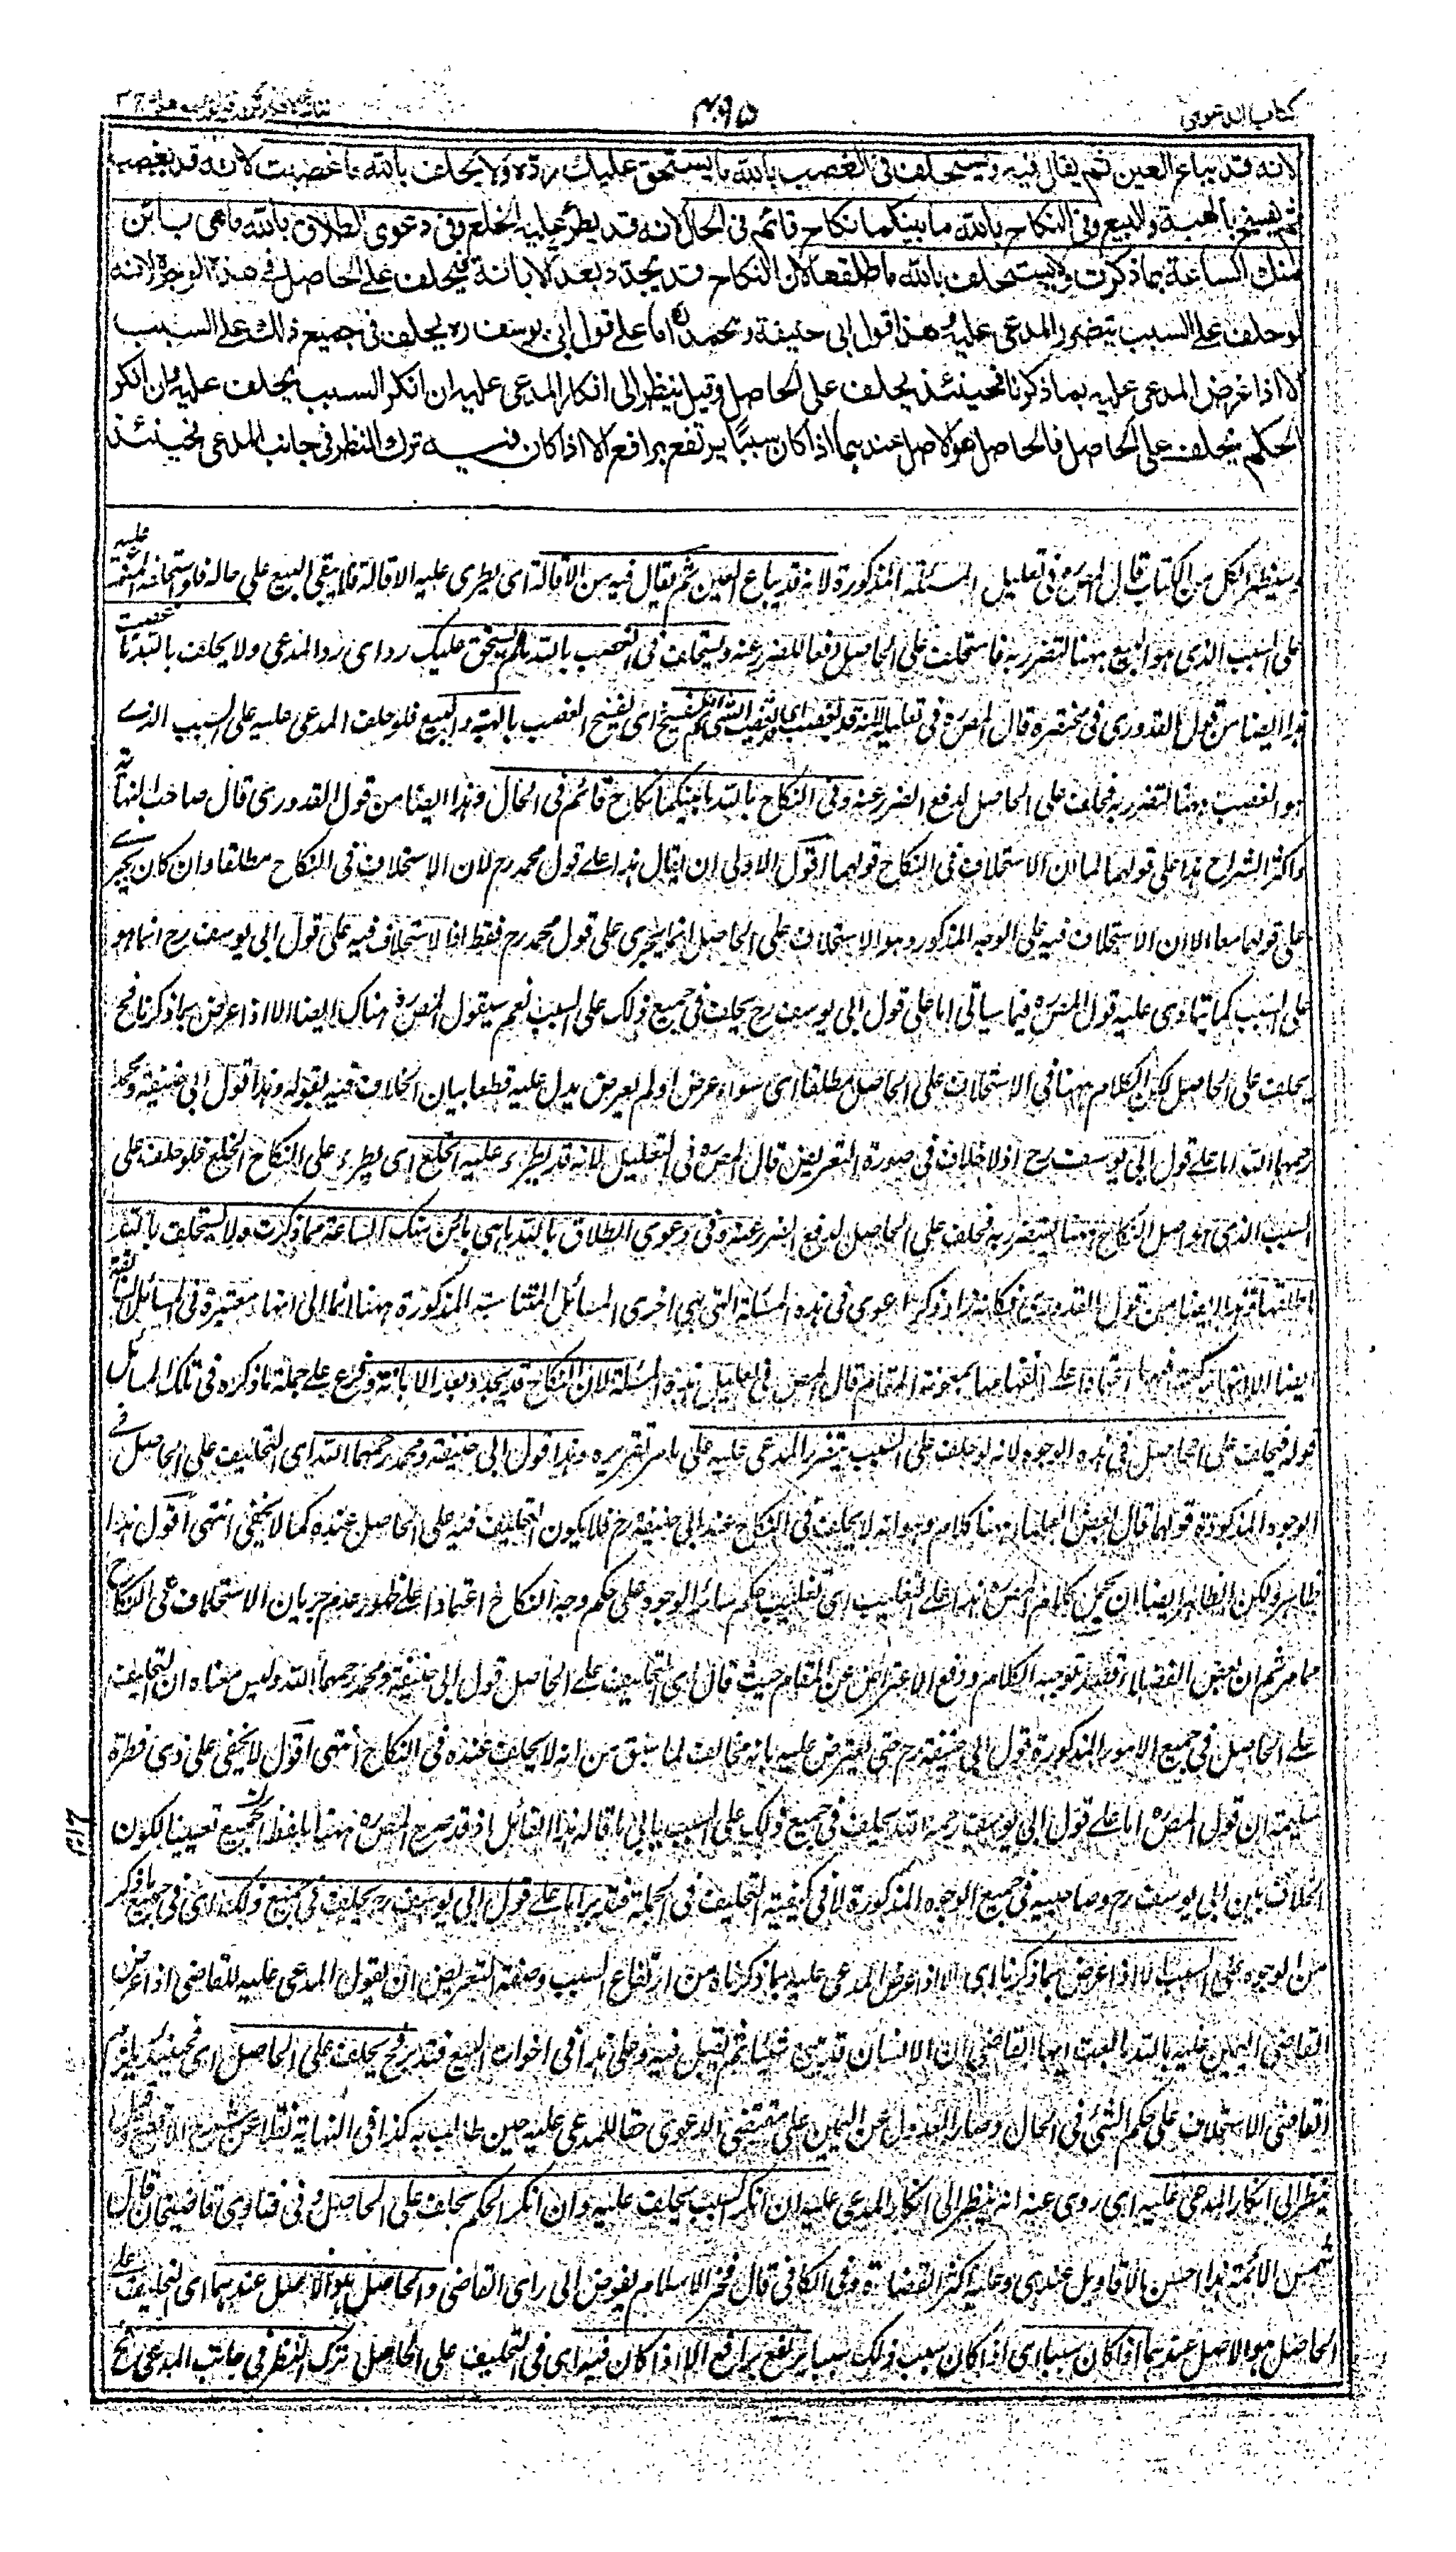 كتاب الدعوى
٤٩٥
لانه قد يباع العين ثم يقال فيه ويستحلف فى الغصب بالله ما يستحق عليك رده ولا يحلف بالله ما غصبت لانه قد يغصب
ثم يفسخ بالهبة والبيع وفى النكاح بالله ما بينكما نكاح قائم فى الحال لانه قد يطرؤ عليه الخلع وفى دعوى الطلاق بالله ما هى بائن
منك الساعة بما ذكرت ولا يستحلف بالله ما طلقها لان النكاح قد يجدد بعد الابانة فيحلف على الحاصل فى هذه الوجوه لانه
لو حلف على السبب يتضرر المدعى عليه وهذا قول ابى حنيفة ومحمد اما على قول ابى يوسف ره يحلف فى جميع ذلك على السبب
الا اذا عرض المدعى عليه بما ذكرنا فحينئذ يحلف على الحاصل وقيل ينظر الى انكار المدعى عليه ان انكر السبب يحلف عليه وان انكر
الحكم يحلف على الحاصل فالحاصل هو الاصل عندهما اذا كان سببا يرتفع برافع الا اذا كان فيه ترك النظر فى جانب المدعى فحينئذ
وسيظهر الكل من الكتاب قال المص ره فى تعليل المسئلة المذكورة لانه قد يباع العين ثم يقال فيه من الاقالة اى يطرى عليه الاقالة فلا يبقى البيع على حاله فلو استحلف المدعى عليه
على السبب الذى هو البيع ههنا لتضرر به فاستحلف على الحاصل دفعا للضرر عنه ويستحلف فى الغصب بالله ما يستحق عليك رده اى رد المدعى ولا يحلف بالله ما غصبت
هذا ايضا من قول القدورى فى مختصره قال المص ره فى تعليله لانه قد يغصب اى قد يغصب الشئ ثم يفسخ اى يفسخ الغصب بالهبة والبيع فلو حلف المدعى عليه على السبب الذى
هو الغصب ههنا لتضرر به فحلف على الحاصل لدفع الضرر عنه وفى النكاح بالله ما بينكما نكاح قائم فى الحال وهذا ايضا من قول القدورى قال صاحب النهاية
واكثر الشراح هذا على قولهما لما ان الاستحلاف فى النكاح قولهما اقول الاولى ان يقال هذا على قول محمد رح لان الاستحلاف فى النكاح مطلقا وان كان يجرى
على قولهما معا الا ان الاستحلاف فيه على الوجه المذكور وهو الاستحلاف على الحاصل انما يجرى على قول محمد رح فقط اذ الاستحلاف فيه على قول ابى يوسف رح انما هو
على السبب كما ينادى عليه قول المص ره فيما سياتى اما على قول ابى يوسف رح يحلف فى جميع ذلك على السبب نعم سيقول المص ره هناك ايضا الا اذا عرض بما ذكرنا فح
يحلف على الحاصل لكن الكلام ههنا فى الاستحلاف على الحاصل مطلقا اى سواء عرض او لم يعرض يدل عليه قطعا بيان الخلاف فيه بقوله وهذا قول ابى حنيفة ومحمد
رحمهما الله اما على قول ابى يوسف رح اذ لا خلاف فى صورة التعريض قال المص ره فى التعليل لانه قد يطرء عليه الخلع اى يطرء على النكاح الخلع فلو حلف على
السبب الذى هو اصل النكاح ههنا ليتضرر به فحلف على الحاصل لدفع الضرر عنه وفى دعوى الطلاق بالله ما هى بائن منك الساعة بما ذكرت ولا يستحلف بالله
ما طلقها وهذا ايضا من قول القدورى فى هذه المسئلة التى هى اخرى المسائل المتناسبة المذكورة ههنا ايماء الى انها معتبرة فى المسائل السابقة
ايضا الا انها اعتمادا على انفهامها بمعونة المقام قال المص فى تعليل هذه المسئلة لان النكاح قد يجدد بعد الابانة وفرع على جملة ما ذكره فى تلك المسائل
قوله فيحلف على الحاصل فى هذه الوجوه لانه لو حلف على السبب يتضرر المدعى عليه على ما مر تقريره وهذا قول ابى حنيفة ومحمد رحمهما الله اى التحليف على الحاصل فى
الوجوه المذكورة قولهما قال بعض العلماء ههنا كلام وهو انه لا يحلف فى النكاح عند ابى حنيفة رح فلا يكون التحليف فيه على الحاصل عنده كما لا يخفى انتهى اقول هذا
ظاهر ولكن الظاهر ايضا ان يحمل كلام المص ره هذا على التغليب اى تغليب حكم سائر الوجوه على حكم وجه النكاح اعتمادا على ظهور عدم جريان الاستحلاف فى النكاح
مما مر ثم ان بعض الفضلاء قصد توجيه الكلام ودفع الاعتراض عن المقام حيث قال اى التحليف على الحاصل قول ابى حنيفة ومحمد رحمهما الله وليس معناه ان التحليف
على الحاصل فى جميع الامور المذكورة قول ابى حنيفة رح حتى يعترض عليه بانه مخالف لما سبق من انه لا يحلف عنده فى النكاح انتهى اقول لا يخفى على ذى فطرة
سليمة ان قول المص ره اما على قول ابى يوسف رحمه الله يحلف فى جميع ذلك على السبب يابى ما قاله هذا القائل اذ قد صرح المص ره ههنا بلفظ الجميع تعيينا لكون
الخلاف بين ابى يوسف رح وصاحبيه فى جميع الوجوه المذكورة لا فى كيفية التحليف فى الجملة فتدبر اما على قول ابى يوسف رح يحلف فى جميع ذلك اى فى جميع ما ذكر
من الوجوه على السبب الا اذا عرض بما ذكرنا اى الا اذا عرض المدعى عليه بما ذكرناه من ارتفاع السبب وصفة التعريض ان يقول المدعى عليه للقاضى اذا عرض
القاضى اليمين عليه بالله ما بعت ايها القاضى ان الانسان قد يبيع شيئا ثم يقيل فيه وعلى هذا فى اخوات البيع فتدبر فح يحلف على الحاصل اى فحينئذ يلزم
القاضى الاستحلاف على حكم الشئ فى الحال وصار العدول عن اليمين على مقتضى الدعوى حقا للمدعى عليه حين طالب به كذا فى النهاية نقلا عن شرح الاقطع وقيل
ينظر الى انكار المدعى عليه اى روى عنه انه ينظر الى انكار المدعى عليه ان انكر السبب يحلف عليه وان انكر الحكم يحلف على الحاصل وفى فتاوى قاضيخان قال
شمس الائمة هذا احسن الاقاويل عندى وعليه اكثر القضاة وفى الكافى قال فخر الاسلام يفوض الى راى القاضى والحاصل هو الاصل عندهما اى التحليف على
الحاصل هو الاصل عندهما اذا كان سببا اى اذا كان سبب ذلك سببا يرتفع برافع الا اذا كان فيه اى فى التحليف على الحاصل ترك النظر فى جانب المدعى فح